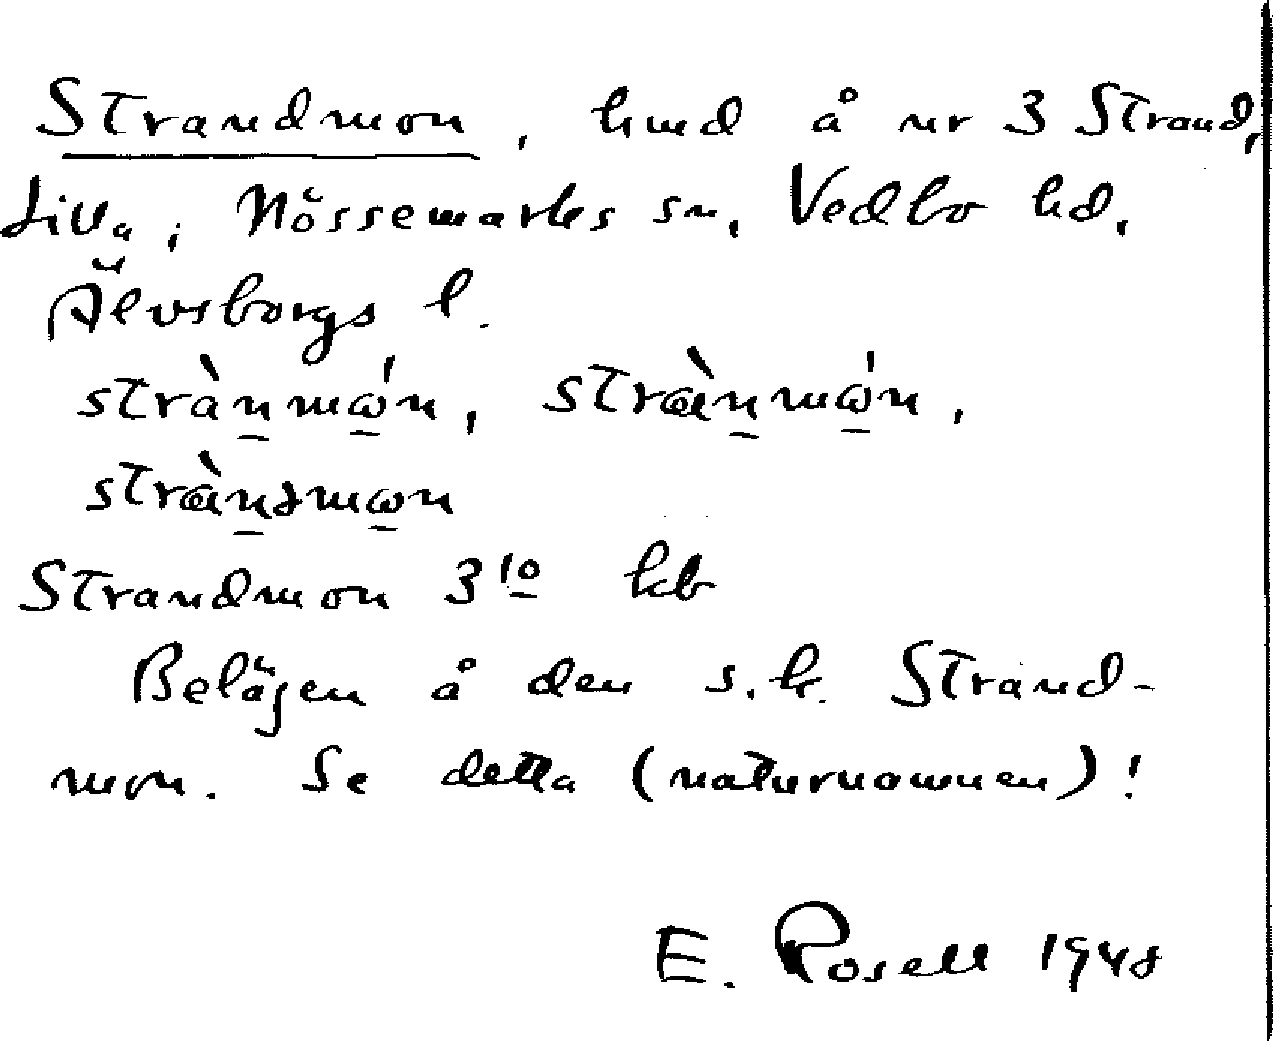 Strandmon, hmd å nr 3 Strand,
Lilla, i Nössemarks sn, Vedbo hd,
Älvsborgs l.
stràn̲mώ̲n, stræ̀n̲mώ̲n,
stræ̀n̲smω̲n
Strandmon 3¹⁰ kb
Belägen å den s.k. Strand-
mon. Se detta (naturnamnen)!
E. Rosell 1948